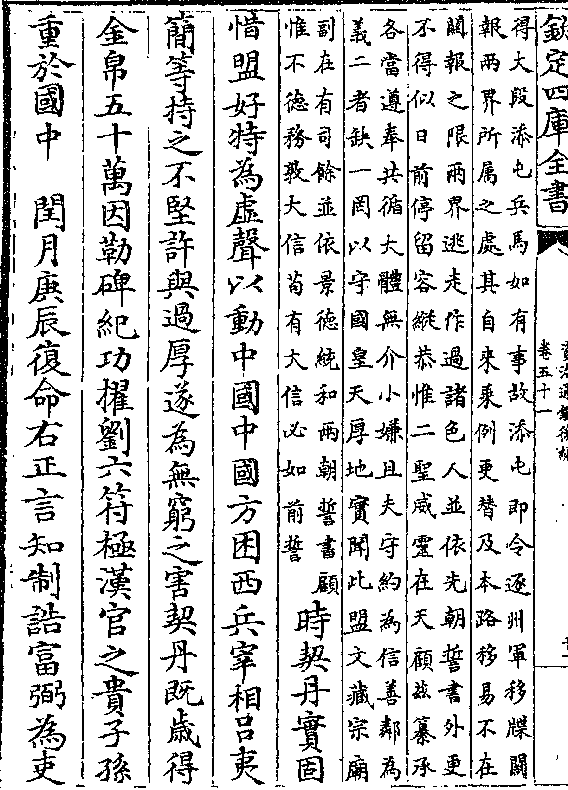 欽定四庫全書
資治通鑑後編
卷五十一
得大段添屯兵馬如有事故添屯即令逐州軍移牒關
報兩界所属之處其自來乘例更替及本路移易不在
關報之限兩界逃走作過諸色人並依先朝誓書外更
不得似日前停留容縱恭惟二聖威靈在天顧兹纂承
各當遵奉共循大體無介小嫌且夫守約為信善鄰為
義二者缺一罔以守國皇天厚地實聞此盟文藏宗廟
副在有司餘並依景德統和兩朝誓書顧
惟不德務敦大信苟有大信必如前誓
時契丹實固
惜盟好特為虛聲以動中國中國方困西兵宰相呂夷
簡等持之不堅許與過厚遂為無窮之害契丹既歲得
金帛五十萬因勒碑紀功擢劉六符極漢官之貴子孫
重於國中　閏月庚辰復命右正言知制誥富弼為吏